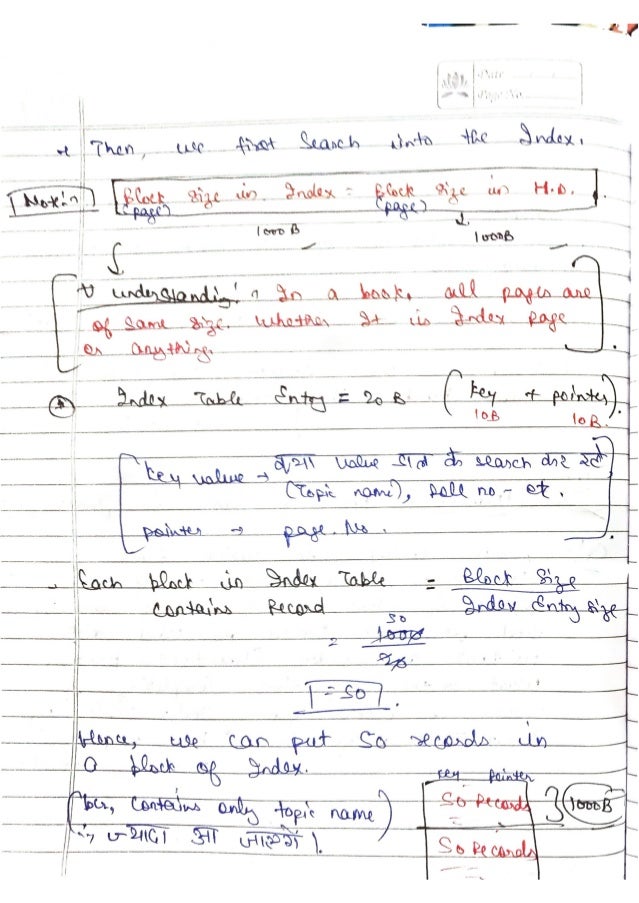 Date
Page No.
* Then, we first Search into the Index.
Note:→ Block size in Index = Block size in H.D.
(page) (page)
1000B 1000B
* understanding:→ In a book, all pages are
of same size. Whether It is Index page
or anything.
Index Table Entry = 20B (key + pointer).
10B 10B.
key value → क्या value डाल के search कर रहे
(Topic name), Roll no. - etc.
pointer → page. No.
Each block in Index Table = Block Size
contains Record Index Entry size
50
= 1000
20
= 50.
Hence, we can put 50 records in
a block of Index.
key pointer
(bcz, contains only topic name 50 Records } 1000B
∴ ज्यादा आ जाएंगे). 50 Records